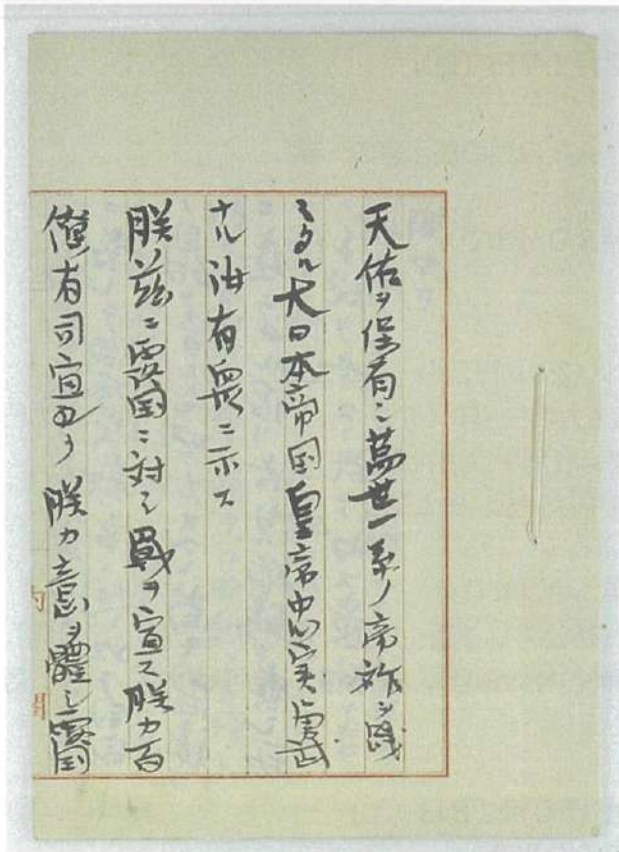 天佑ヲ保有シ萬世一系ノ帝祚ヲ践
ミタル大日本帝国皇帝忠実勇武
ナル汝有衆ニ示ス
朕茲ニ露国ニ対シ戦ヲ宣ス朕カ百
僚有司宜シク朕カ意ヲ體シ露国